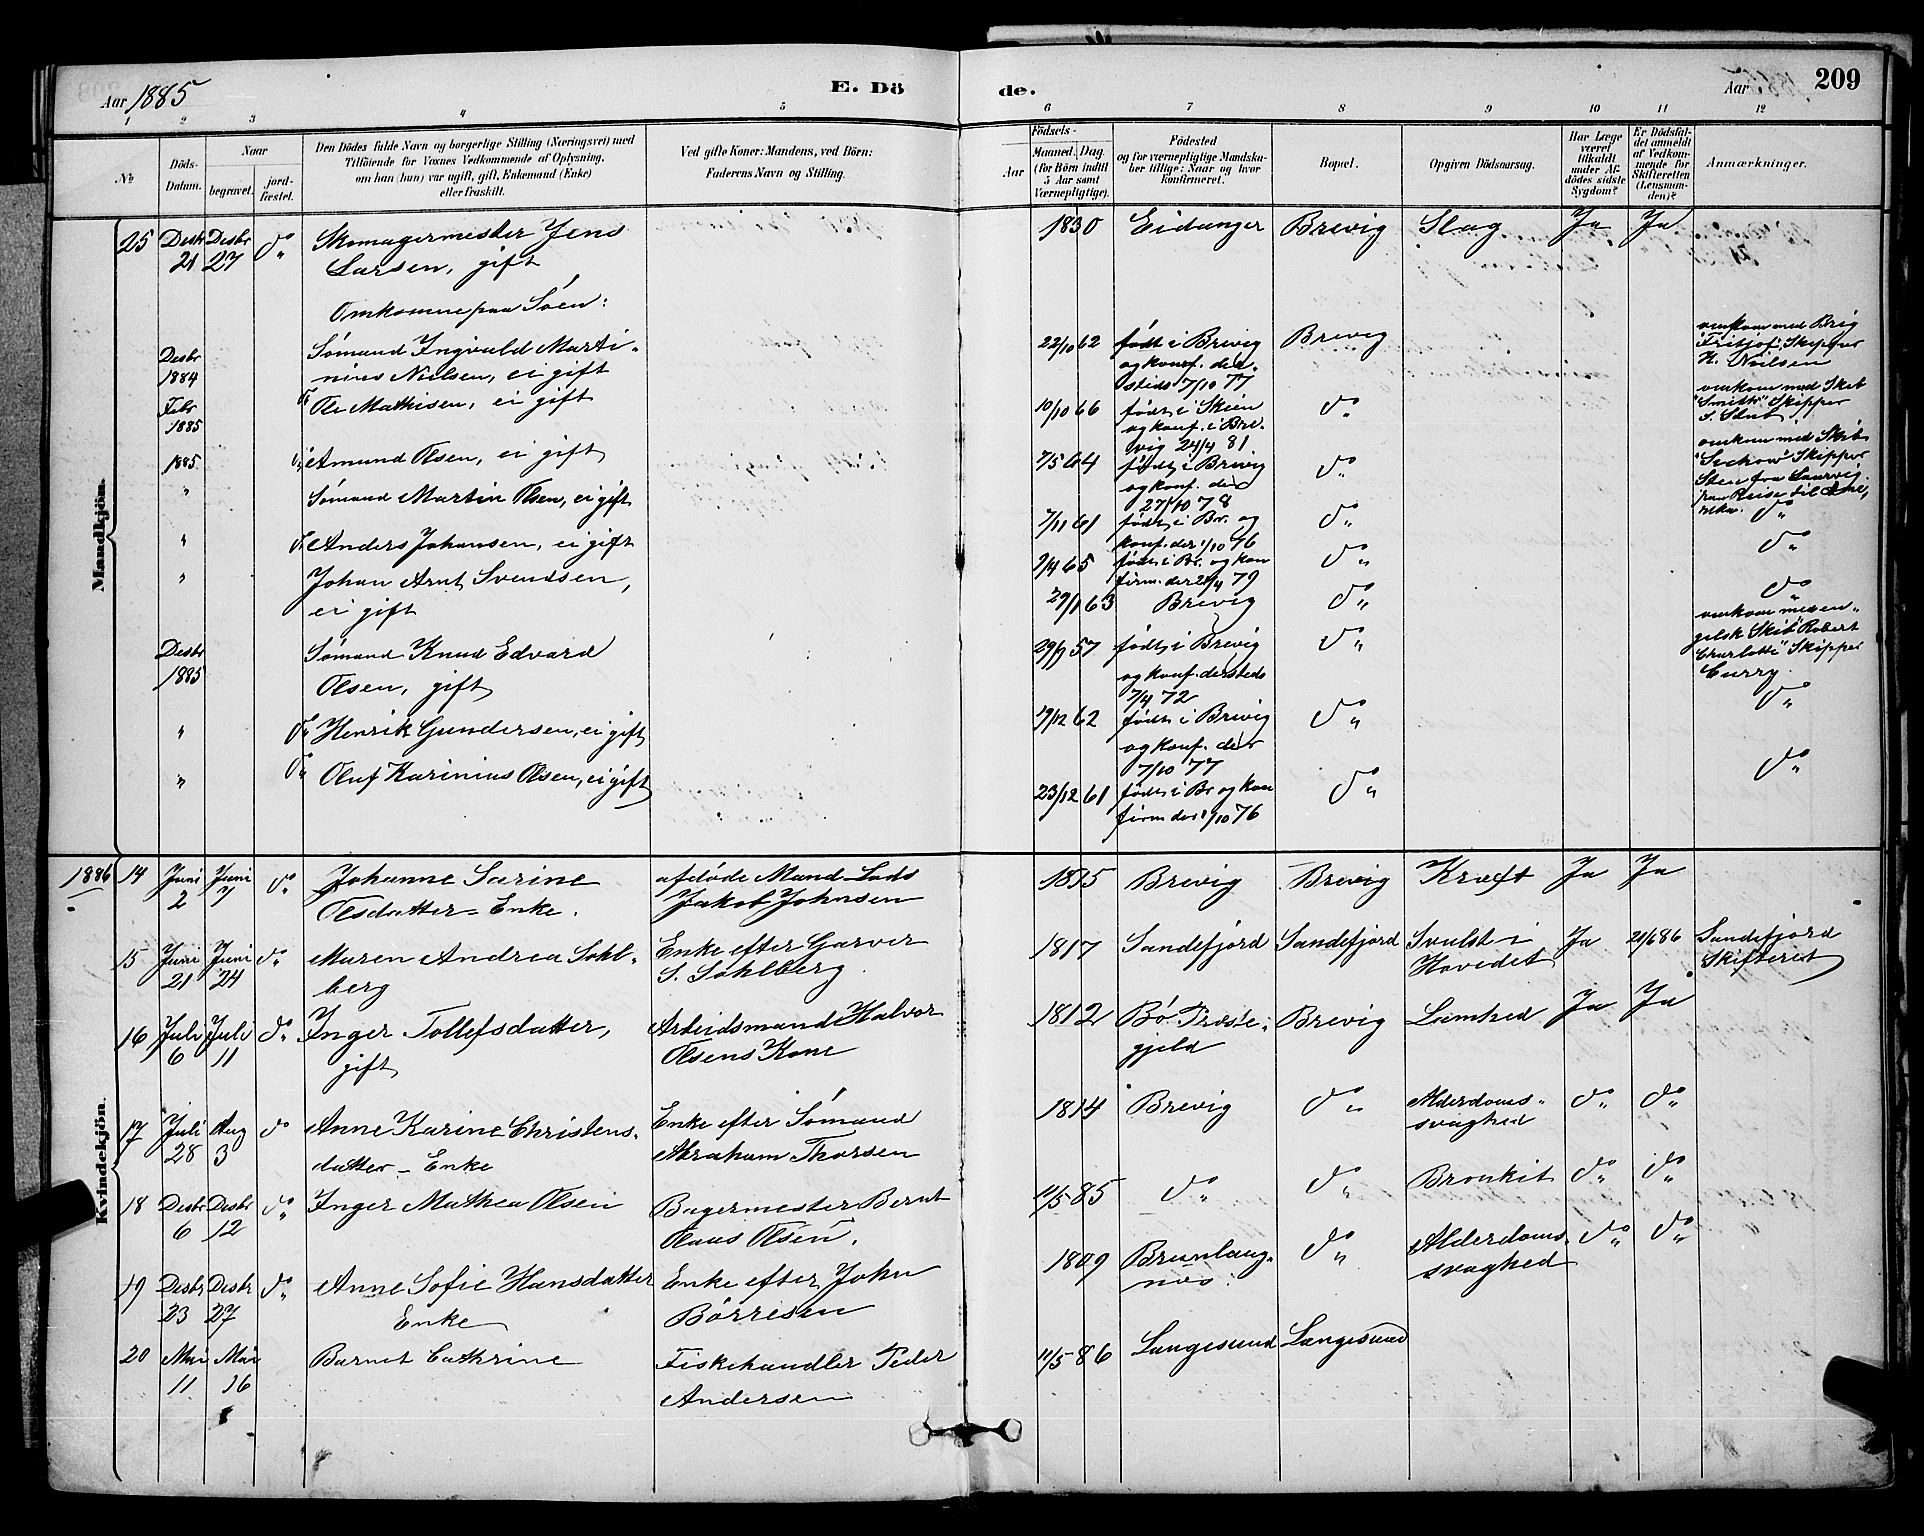 Aar 1885
E. Dö
de.
Aar
209
1 2 3 4 5 6 7 8 9 10 11 12
No
Döds-
Datum.
Naar
begravet.
jord-
fæstet.
Den Dödes fulde Navn og borgerlige Stilling (Næringsvei) med
Tilföiende for Voxnes Vedkommende af Oplysning,
om han (hun) var ugift, gift, Enkemand (Enke)
eller fraskilt.
Ved gifte Koner: Mandens, ved Börn:
Faderens Navn og Stilling.
Födsels-
Aar
Maaned. Dag.
(for Börn indtil
5 Aar samt
Værnepligtige).
Födested
og for værnepligtige Mandska-
ber tillige: Naar og hvor
Konfirmeret.
Bopæl.
Opgiven Dödsaarsag.
Har Læge
været
tilkaldt
under Af-
dödes sidste
Sygdom?
Er Dödsfal-
det anmeldt
af Vedkom-
mende for
Skifteretten
(Lensman-
den)?
Anmærkninger.
Mandkjön.
25 Desbr 21 Desbr 27 do Skomagermester Jens
Larsen, gift
1830 Eidanger Brevig Slag Ja Ja
Omkomne paa Söen:
Desbr
1884
Sömand Ingvald Marti-
nius Nielsen, ei gift
22/10 62 født i Brevig
og konf. der-
steds 7/10 77
Brevig
omkom med Brig
"Fritjof", Skipper
H. Neilsen
Febr
1885
do Ole Mathisen, ei gift
10/10 66 født i Skien
og konf. i Bre-
vig 24/4 81
do
omkom med Skib
"Smith" Skipper
1885
do Amund Olsen, ei gift
7/5 64 født i Brevig
og konf. der
27/10 78
do
omkom med Skib
Skipper
Steen fra Laurvig
paa Reise til Ame-
rika.
" Sömand Martin Olsen, ei gift
7/11 61 født i Br. og
konf. der 1/10 76
do
do
" do Anders Johansen, ei gift
9/4 65 født i Br. og kon
firm. der 21/4 79
do
do
" Johan Arnt Svendsen,
ei gift
29/1 63 Brevig
do
do
Desbr
1885
Sömand Knud Edvard
Olsen, gift
29/9 57 født i Brevig
og konf. dersteds
7/4 72
do
omkom med en-
gelsk Skib "Robert
Charlotte" Skipper
Curry.
" do Henrik Gundersen, ei gift
19/12 62 født i Brevig
og konf. der
7/10 77
do
do
" do Oluf Karinius Olsen, ei gift
23/12 61 født i Br og kon
firm der 1/10 76
do
do
1886
Kvindekjön.
14 Juni 2 Juni 7 do Johanne Sarine
Olsdatter = Enke.
afdøde Mand Lods
Jakob Johnsen
1835 Brevig Brevig Kræft Ja Ja
15 Juni 21 Juni 24 do Maren Andrea Sohl-
berg
Enke efter Garver
S. Sohlberg
1817 Sandefjord Sandefjord Svulst i
Hovedet
Ja 21/6 86 Sandefjord
Skifteret
16 Juli 6 Juli 11 do Inger Tollefsdatter,
gift
Arbeidsmand Halvor
Olsens Kone
1812 Bö Præste-
gjeld
Brevig Lamhed Ja Ja
17 Juli 28 Aug 3 do Anne Karine Christens-
datter - Enke
Enke efter Sömand
Abraham Thorsen
1814 Brevig do Alderdoms-
svaghed
do do
18 Desbr 6 Desbr 12 do Inger Mathea Olsen
Bagermester Bernt
Claus Olsen.
11/5 85 do do Bronkit do do
19 Desbr 23 Desbr 27 do Anne Sofie Hansdatter
Enke
Enke efter John
Börresen
1809 Brunlaug-
næs.
do Alderdoms-
svaghed
do do
20 Mai 11 Mai 16 Barnet Cathrine
Fiskehandler Peder
Andersen
11/5 86 Langesund Langesund